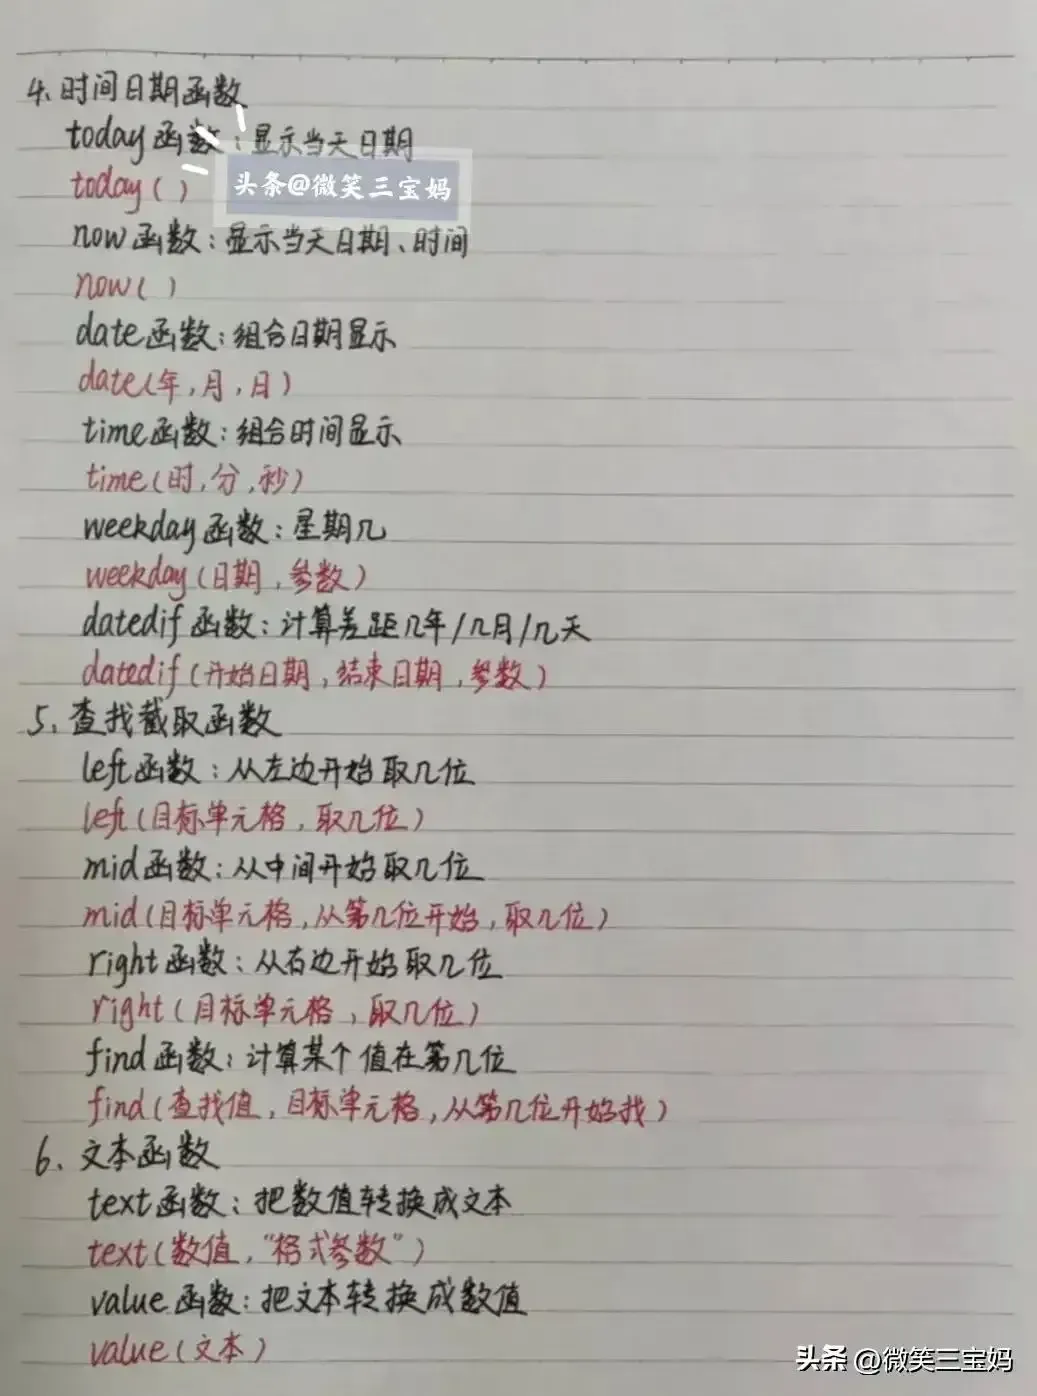 4、时间日期函数
today函数：显示当天日期
today( )
头条@微笑三宝妈
now函数：显示当天日期、时间
now( )
date函数：组合日期显示
date(年,月,日)
time函数：组合时间显示
time(时,分,秒)
weekday函数：星期几
weekday(日期,参数)
datedif函数：计算差距几年/几月/几天
datedif(开始日期,结束日期,参数)
5、查找截取函数
left函数：从左边开始取几位
left(目标单元格,取几位)
mid函数：从中间开始取几位
mid(目标单元格,从第几位开始,取几位)
right函数：从右边开始取几位
right(目标单元格,取几位)
find函数：计算某个值在第几位
find(查找值,目标单元格,从第几位开始找)
6、文本函数
text函数：把数值转换成文本
text(数值,"格式参数")
value函数：把文本转换成数值
value(文本)
头条 @微笑三宝妈